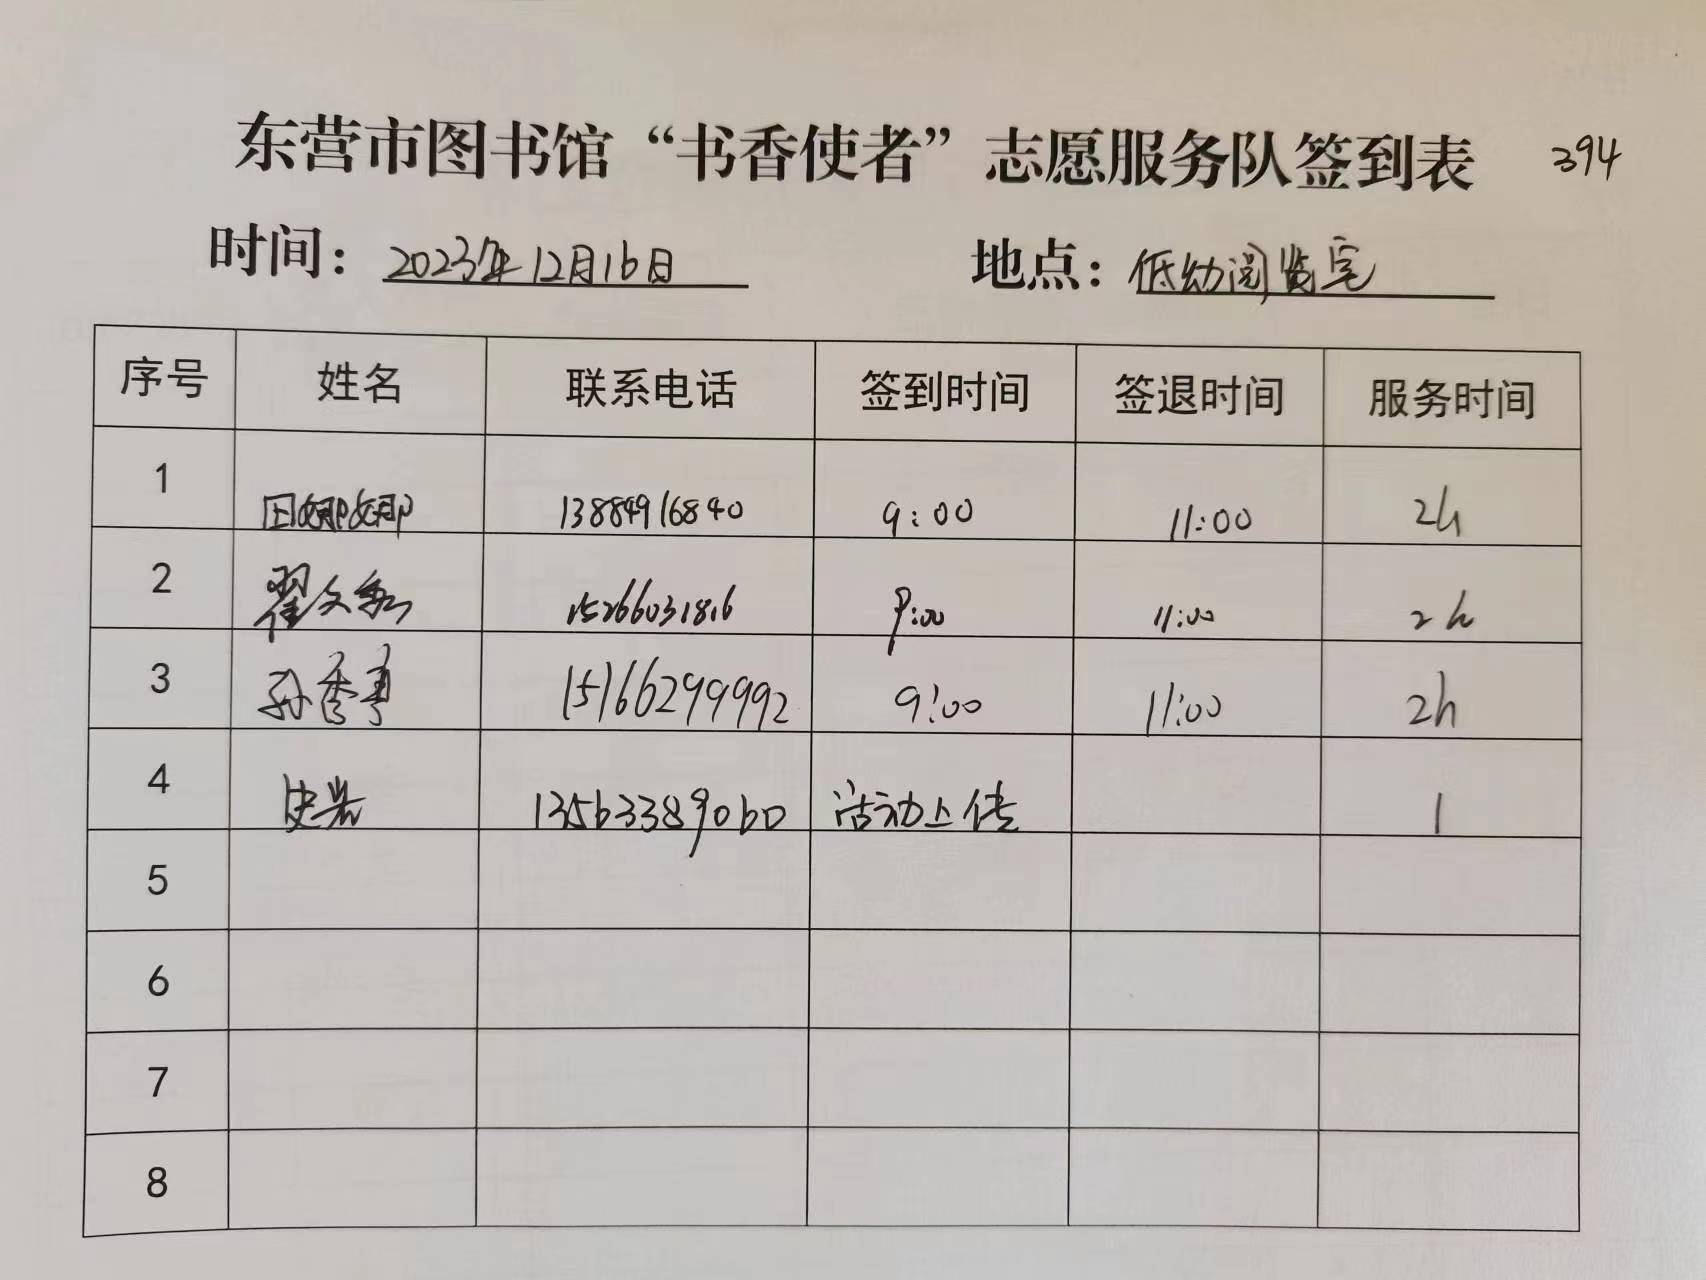 东营市图书馆“书香使者”志愿服务队签到表 394
时间：2023年12月16日 地点：低幼阅览室
序号 姓名 联系电话 签到时间 签退时间 服务时间
1 田娜娜 13884916840 9:00 11:00 2h
2 翟文 15266031816 9:00 11:00 2h
3 孙秀 15166299992 9:00 11:00 2h
4 史岩 13563389060 活动上传 1
5
6
7
8